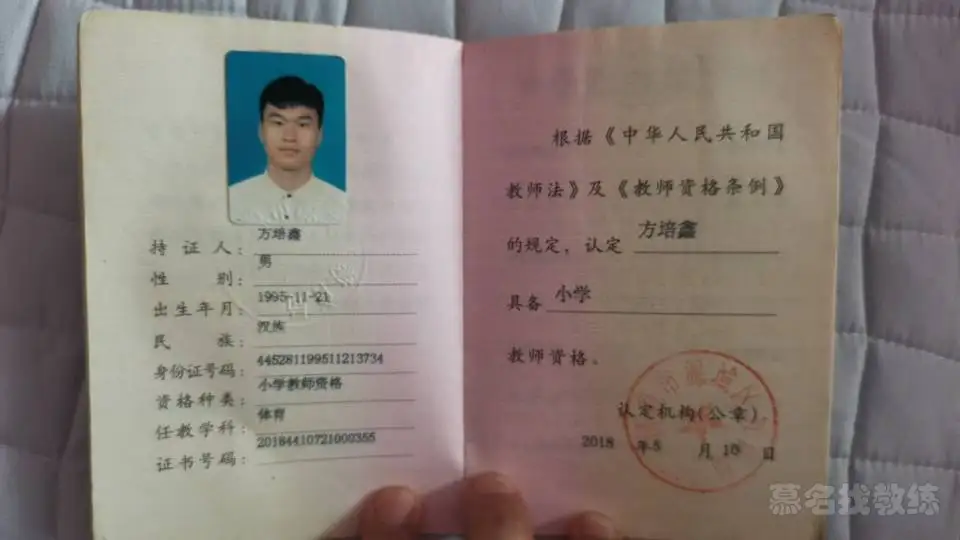 持 证 人： 方培鑫
性 别： 男
出生年月： 1995-11-21
民 族： 汉族
身份证号码： 445281199511213734
资格种类： 小学教师资格
任教学科： 体育
证书号码： 20184410721000355
根据《中华人民共和国
教师法》及《教师资格条例》
的规定，认定 方培鑫
具备 小学
教师资格。
认定机构(公章)
2018 年5 月10 日
慕名找教练